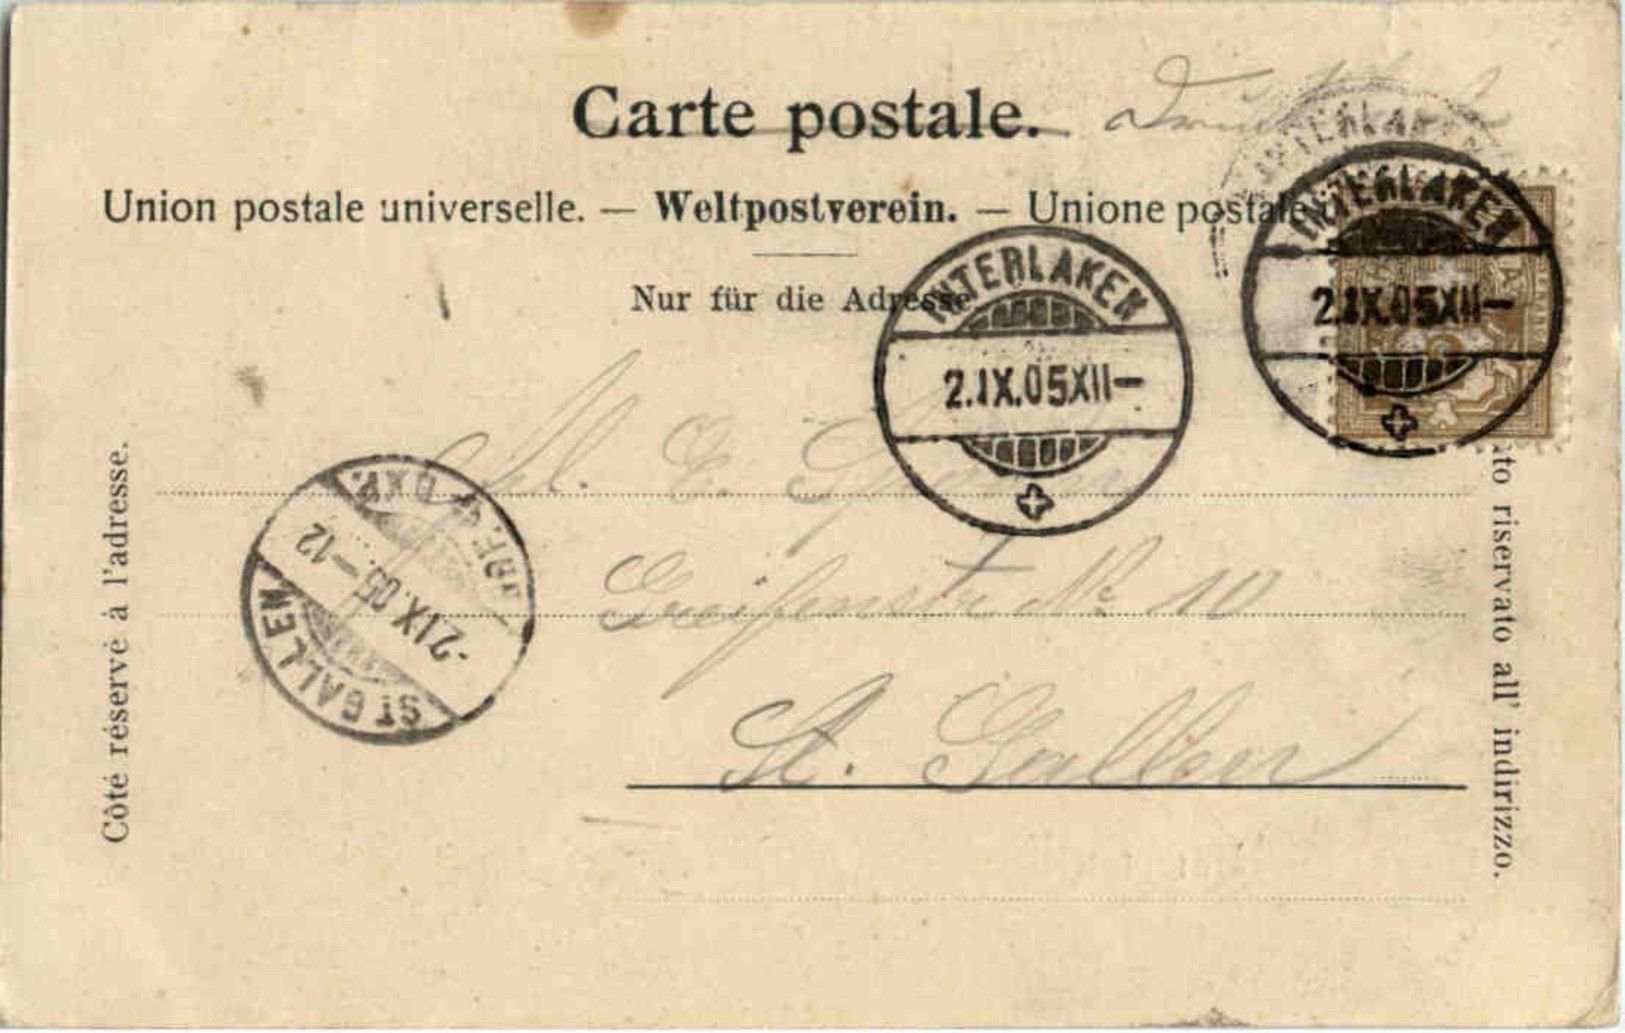 Carte postale.
Union postale universelle. — Weltpostverein. — Unione postale
Nur für die Adresse
INTERLAKEN
2.IX.05XII—
INTERLAKEN
2.IX.05XII—
INTERLAKEN
Côté réservé à l'adresse.
riservato all' indirizzo.
ST GALLEN
-2IX.05.—12
E.
No 10
St. Gallen